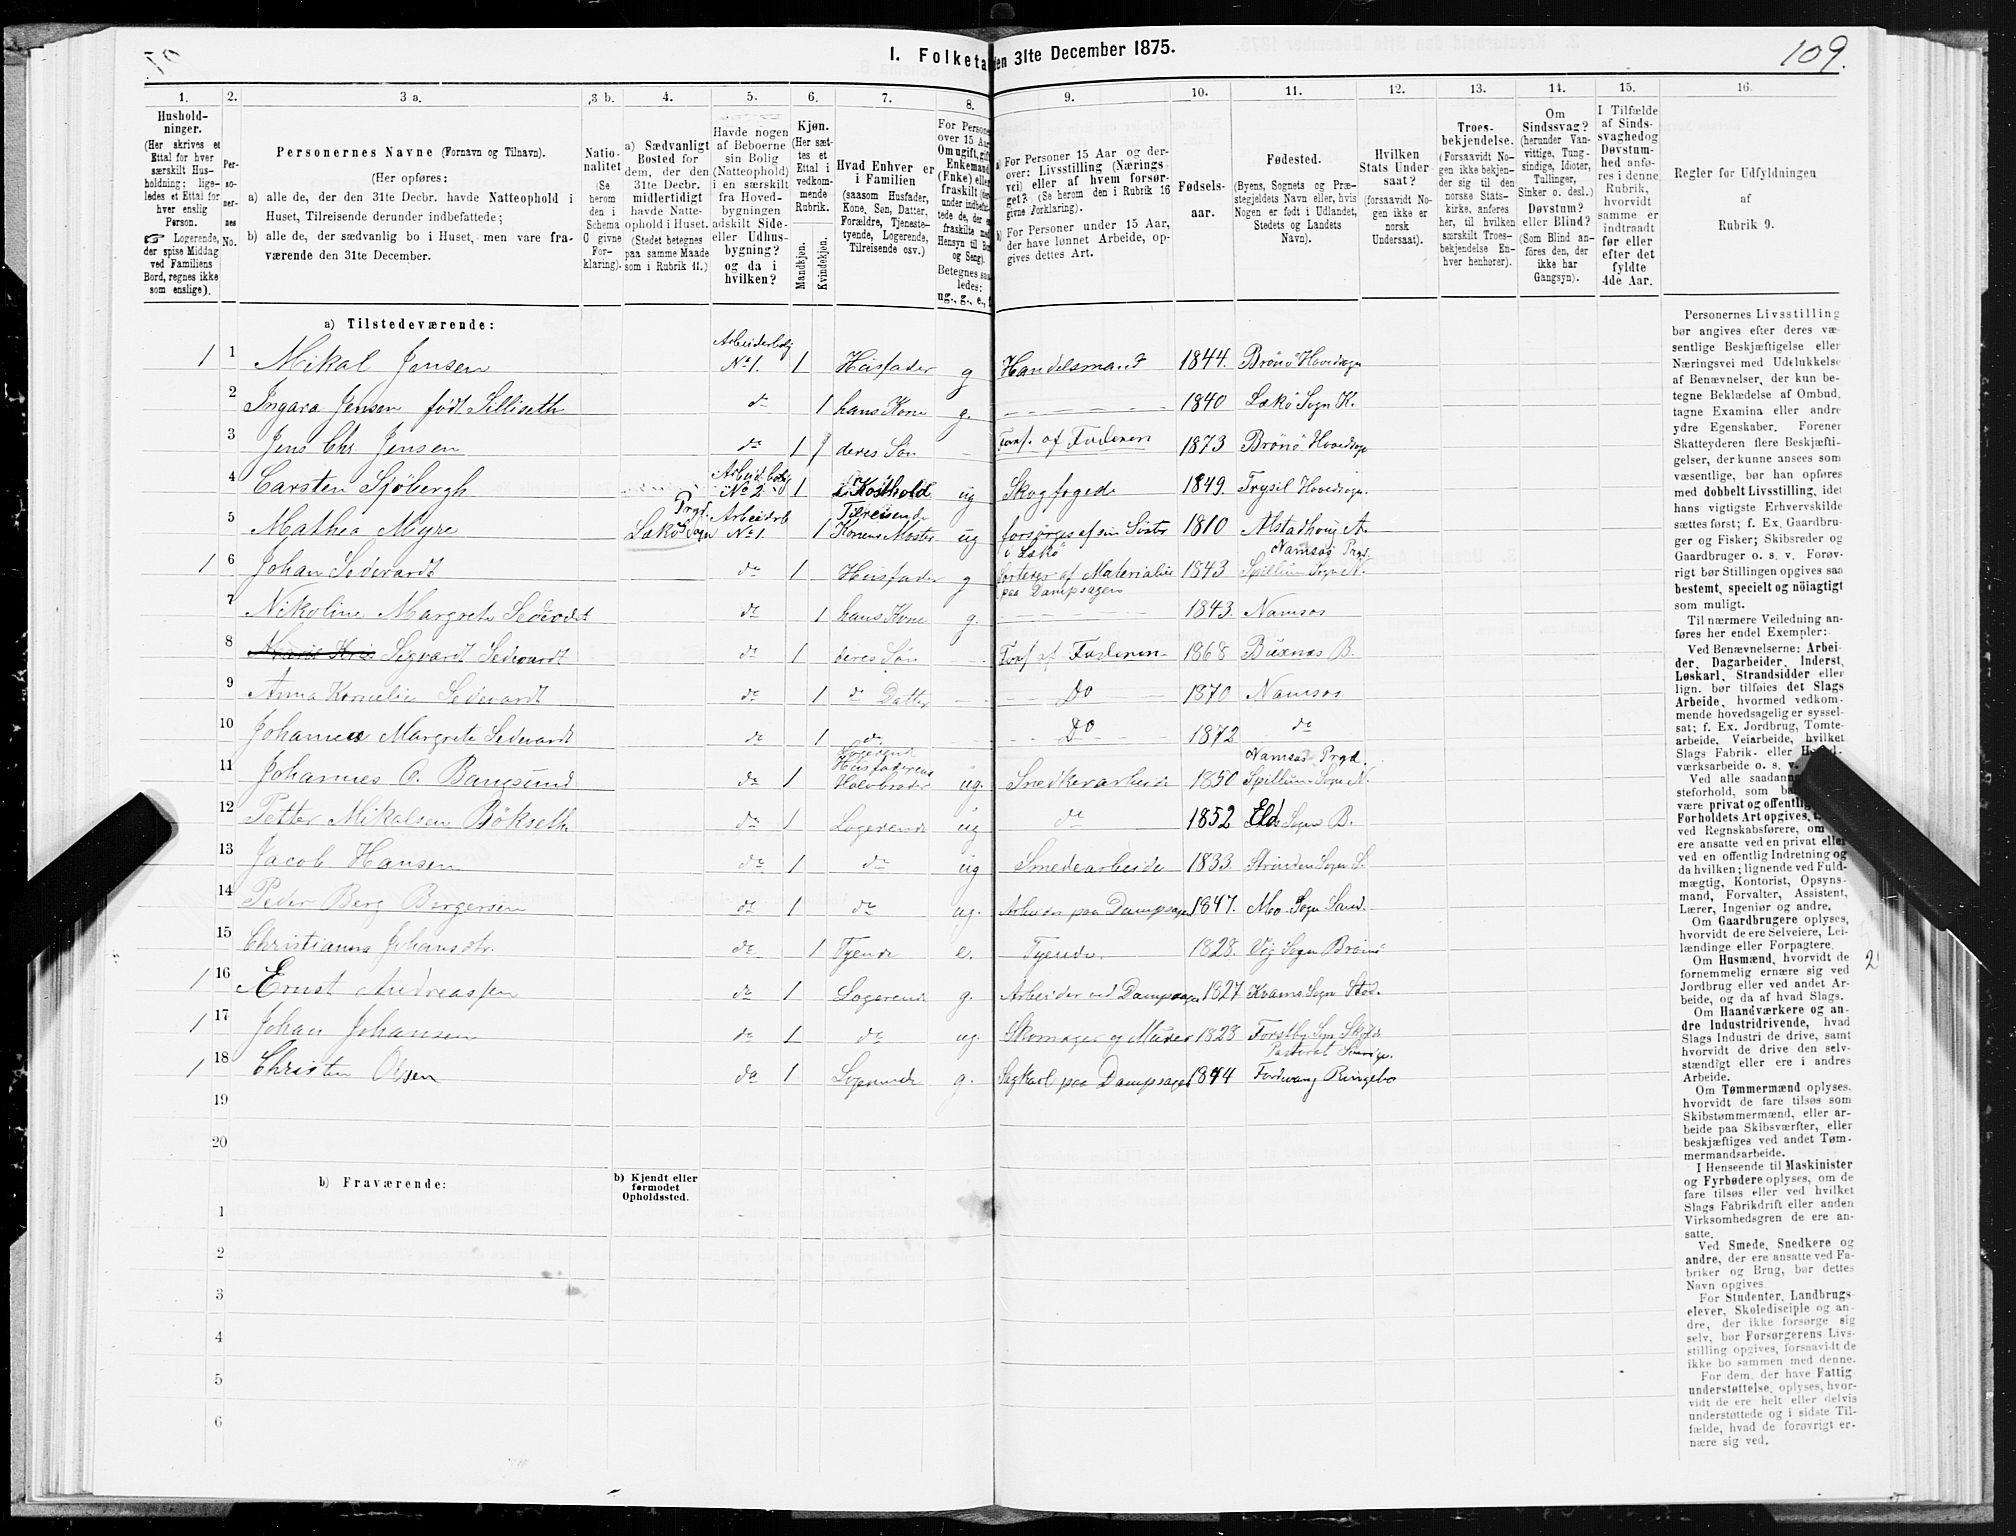 I. Folketælling den 31te December 1875.
109.
1. Husholdninger. (Her skrives et Ettal for hver særskilt Husholdning; ligeledes et Ettal for hver enslig Person. ☞ Logerende, der spise Middag ved Familiens Bord, regnes ikke som enslige).
2. Personernes No.
3 a. Personernes Navne (Fornavn og Tilnavn).
(Her opføres:
a) alle de, der den 31te Decbr. havde Natteophold i Huset, Tilreisende derunder indbefattede;
b) alle de, der sædvanlig bo i Huset, men vare fraværende den 31te December.
3 b. Nationalitet (Se herom den i Schema C givne Forklaring).
4. a) Sædvanligt Bosted for dem, der den 31te Decbr. midlertidigt havde Natteophold i Huset. (Stedet betegnes paa samme Maade som i Rubrik 11.)
5. Havde nogen af Beboerne sin Bolig (Natteophold) i en særskilt fra Hovedbygningen adskilt Side- eller Udhusbygning? og da i hvilken?
6. Kjøn. (Her sættes et Ettal i vedkommende Rubrik. Mandkjøn. Kvindekjøn.
7. Hvad Enhver er i Familien (saasom Husfader, Kone, Søn, Datter, Forældre, Tjenestetyende, Logerende, Tilreisende osv.).
8. For Personer over 15 Aar: Om ugift, gift, Enkemand (Enke) eller fraskilt
9. a) For Personer 15 Aar og derover: Livsstilling (Næringsvei) eller af hvem forsørget? (Se herom den i Rubrik 16 givne Forklaring).
b) For Personer under 15 Aar, der have lønnet Arbeide, opgives dettes Art.
10. Fødselsaar.
11. Fødested. (Byens, Sognets og Præstegjeldets Navn eller, hvis Nogen er født i Udlandet, Stedets og Landets Navn).
12. Hvilken Stats Undersaat? (forsaavidt Nogen ikke er norsk Undersaat).
13. Troesbekjendelse. (Forsaavidt Nogen ikke bekjender sig til den norske Statskirke, anføres her, til hvilken særskilt Troesbekjendelse Enhver henhører).
14. Om Sindssvag? (herunder Vanvittige, Tungsindige, Idioter, Tullinger, Sinker o. desl.) Døvstum? eller Blind? (Som Blind anføres den, der ikke har Gangsyn).
15. I Tilfælde af Sindssvaghed og Døvstumhed anføres i denne Rubrik, hvorvidt samme er indtraadt før eller efter det fyldte 4de Aar.
16. Regler for Udfyldningen af Rubrik 9.
a) Tilstedeværende:
1 1 Mikal Jensen Arbeiderbolig No 1. 1 Husfader g Handelsmand 1844. Brönö Hovedsogn
2 Ingara Jensen født Silliseth do 1 hans Kone g. 1840 Lekö Sogn K.
3 Jens Chr Jensen do 1 deres Søn Fors. af Faderen 1873 Brönö Hovedsogn
4 Carsten Sjöbergh Arbeid.bolig No 2 1 i Kosthold ug Skogfoged 1849. Trysil Hovedsogn.
5 Mathea Myre Lekö Sogn Prgd. Arbeiderb No 1. 1 Tilreisende Konens Moster ug forsörges af sin Söster i Lekö 1810 Alstadhoug A.
1 6 Johan Sedevardt do 1 Husfader g Sorterer af Materialier paa Dampsagen 1843 Namsos Prgd. Spillum Sogn N.
7 Nikoline Margrete Sedevardt do 1 hans Kone g. 1843. Namsos
8 Sigvardt Sedevardt do 1 deres Søn Fors. af Faderen 1868 Buxnæs B.
9 Anna Kornelie Sedevardt do 1 do Datter Do 1870 Namsos
10 Johanna Margrete Sedevardt do 1 do Do 1872 do
11 Johannes O. Bangsund do 1 Logerend Husfaderens Halvbroder ug. Snedkerarbeide 1850 Namsos Prgd. Spillum Sogn N.
12 Petter Mikalsen Bökseth do 1 Logerende ug do 1852 Elds Sogn B.
13 Jacob Hansen do 1 do ug Smedearbeide 1833 Strinden Sogn S.
14 Peder Berg Bergersen do 1 do ug. Arbeider paa Dampsagen 1847. Mo Sogn Sand.
15 Christianna Johansdtr. do 1 Tyende e. Tyende. 1828. Vig Sogn Brönö
1 16 Ernst Andreassen do 1 Logerend g. Arbeider ved Dampsagen 1827 Kvams Sogn Stod.
1 17 Johan Johansen do 1 do ug. Skomager og Murer 1823 Forstby Sogn Pastorat Sverige.
1 18 Christen Olsen do 1 Logerende g. Sagkarl paa Dampsagen 1844 Fordvang Ringebo
19
20
b) Fraværende:
b) Kjendt eller formodet Opholdssted.
1
2
3
4
5
6
Personernes Livsstilling bør angives efter deres væsentlige Beskjæftigelse eller Næringsvei med Udelukkelse af Benævnelser, der kun betegne Beklædelse af Ombud, tagne Examina eller andre ydre Egenskaber. Forener Skatteyderen flere Beskjæftigelser, der kunne ansees som væsentlige, bør han opføres med dobbelt Livsstilling, idet hans vigtigste Erhvervskilde sættes først; f. Ex. Gaardbruger og Fisker; Skibsreder og Gaardbruger o. s. v. Forøvrigt bør Stillingen opgives saa bestemt, specielt og nöiagtigt som muligt.
Til nærmere Veiledning anføres her endel Exempler:
Ved Benævnelserne: Arbeider, Dagarbeider, Inderst, Løskarl, Strandsidder eller lign. bør tilføies det Slags Arbeide, hvormed vedkommende hovedsagelig er sysselsat; f. Ex. Jordbrug, Tomtearbeide, Veiarbeide, hvilket Slags Fabrik- eller Haandværksarbeide o. s. v.
Ved alle saadanne
være privat og offentlig
Forholdets Art opgives,
ved Regnskabsførere, om de ere ansatte ved en privat eller ved en offentlig Indretning og da hvilken; lignende ved Fuldmægtig, Kontorist, Opsynsmand, Forvalter, Assistent, Lærer, Ingeniør og andre.
Om Gaardbrugere oplyses, hvorvidt de ere Selveiere, Leilændinge eller Forpagtere.
Om Husmænd, hvorvidt de fornemmelig ernære sig ved Jordbrug eller ved andet Arbeide, og da af hvad Slags.
Om Haandværkere og andre Industridrivende, hvad Slags Industri de drive, samt hvorvidt de drive den selvstændigt eller ere i andres Arbeide.
Om Tømmermænd oplyses, hvorvidt de fare tilsøs som Skibstømmermænd, eller arbeide paa Skibsværfter, eller beskjæftiges ved andet Tømmermandsarbeide.
I Henseende til Maskinister og Fyrbødere oplyses, om de fare tilsøs eller ved hvilket Slags Fabrikdrift eller anden Virksomhedsgren de ere ansatte.
Ved Smede, Snedkere og andre, der ere ansatte ved Fabriker og Brug, bør dettes Navn opgives.
For Studenter, Landbrugselever, Skoledisciple og andre, der ikke forsørge sig selv, bør Forsørgerens Livsstilling opgives, forsaavidt de ikke bo sammen med denne.
For dem, der have Fattigunderstøttelse, oplyses, hvorvidt de ere helt eller delvis understøttede og i sidste Tilfælde, hvad de forøvrigt ernære sig ved.